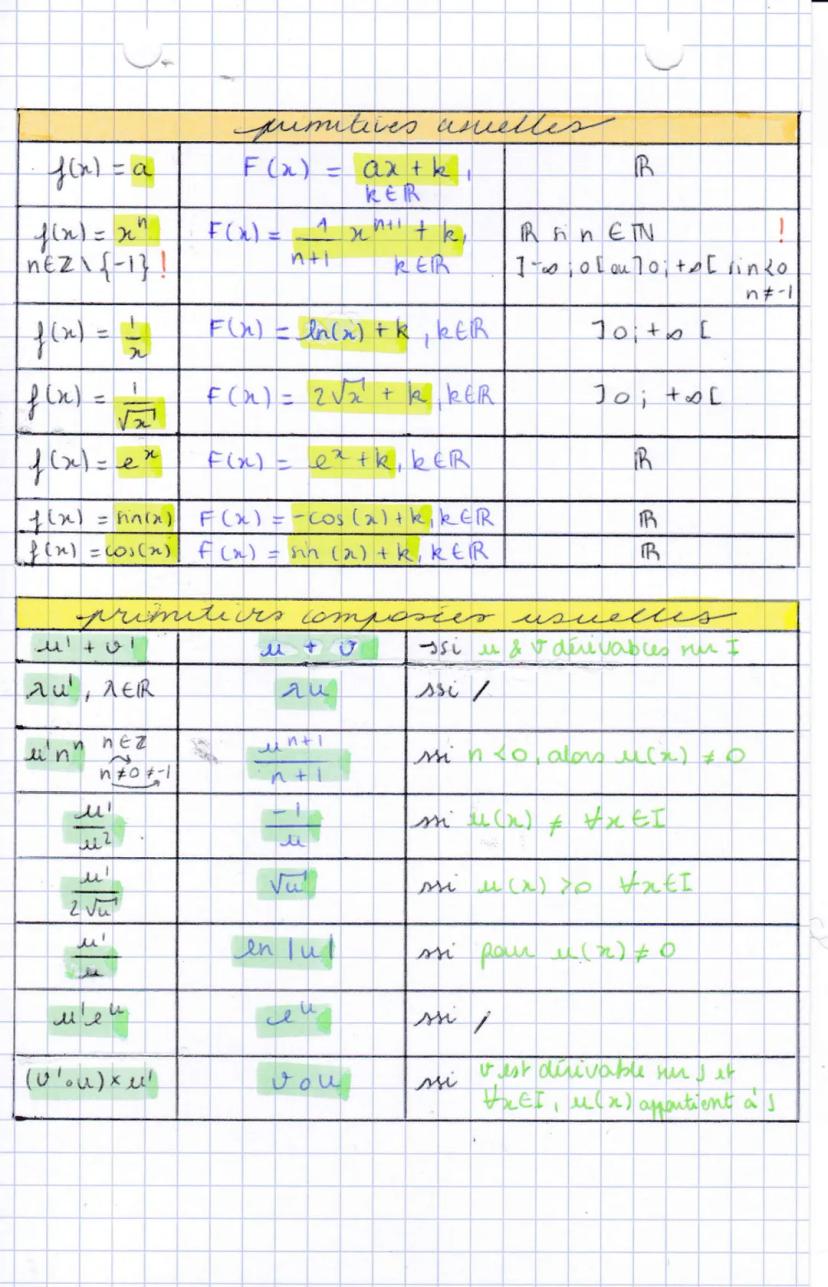 primitives usuelles
f(x) = a F(x) = ax + k, ℝ
k∈ℝ
f(x) = xⁿ F(x) = 1/(n+1) xⁿ⁺¹ + k, ℝ si n ∈ ℕ !
n∈ℤ \ {-1} ! k∈ℝ ]-∞ ; 0[ ou ]0 ; +∞[ si n<0
n≠-1
f(x) = 1/x F(x) = ln(x) + k, k∈ℝ ]0 ; +∞[
f(x) = 1/√x F(x) = 2√x + k, k∈ℝ ]0 ; +∞[
f(x) = eˣ F(x) = eˣ + k, k∈ℝ ℝ
f(x) = sin(x) F(x) = -cos(x) + k, k∈ℝ ℝ
f(x) = cos(x) F(x) = sin(x) + k, k∈ℝ ℝ
primitives composées usuelles
u' + v' u + v ssi u & v dérivables sur I
λu', λ∈ℝ λu ssi /
u'nⁿ n∈ℤ uⁿ⁺¹/(n+1) ssi n<0, alors u(x) ≠ 0
n≠0≠-1
u'/u² -1/u ssi u(x) ≠ ∀x∈I
u'/2√u √u ssi u(x) >0 ∀x∈I
u'/u ln |u| ssi pour u(x) ≠ 0
u'eᵘ eᵘ ssi /
(v'∘u)×u' v∘u ssi v est dérivable sur J et
∀x∈I, u(x) appartient à J